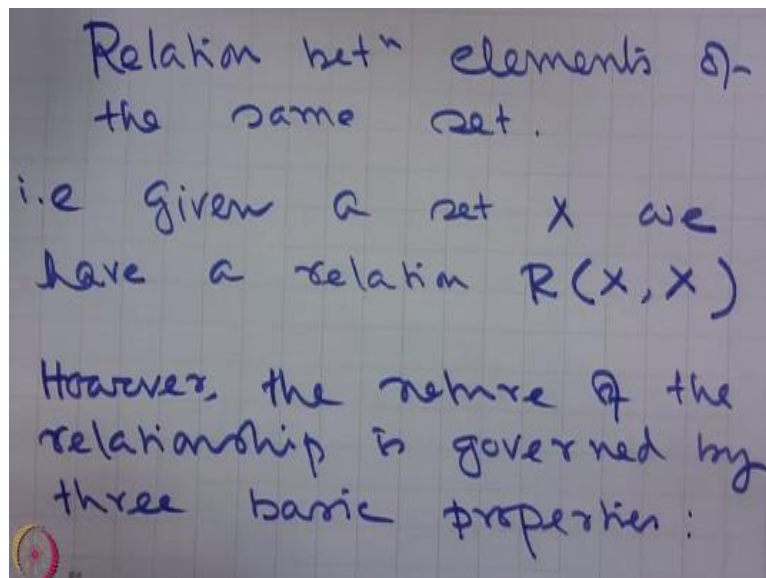 Relation betⁿ elements of
the same set.
i.e given a set X we
have a relation R(X, X)
However, the nature of the
relationship is governed by
three basic properties: